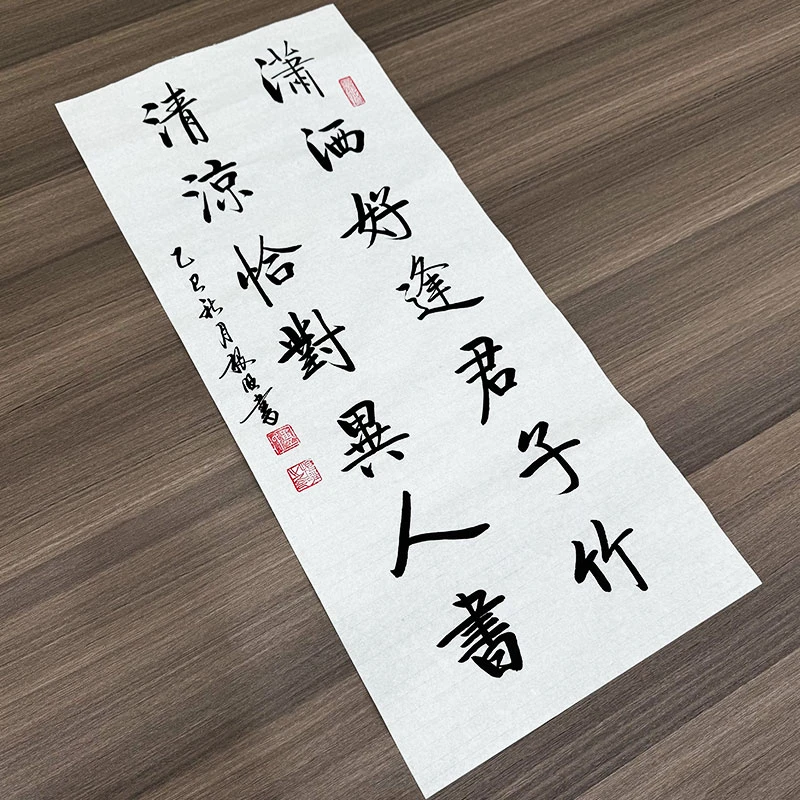 瀟洒好逢君子竹
清涼恰對異人書
乙巳秋月
書